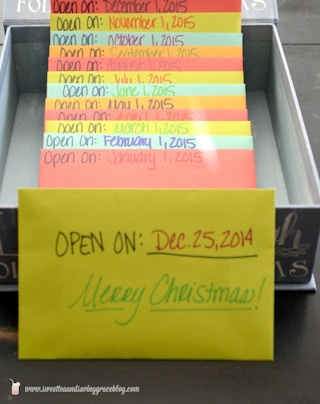 Open On: December 1, 2015
Open On: November 1, 2015
Open On: October 1, 2015
Open On: September 1, 2015
Open On: August 1, 2015
Open On: July 1, 2015
Open On: June 1, 2015
Open On: May 1, 2015
Open On: April 1, 2015
Open On: March 1, 2015
Open On: February 1, 2015
Open On: January 1, 2015
OPEN ON: Dec. 25, 2014
Merry Christmas!
www.sweetteaandsavinggraceblog.com